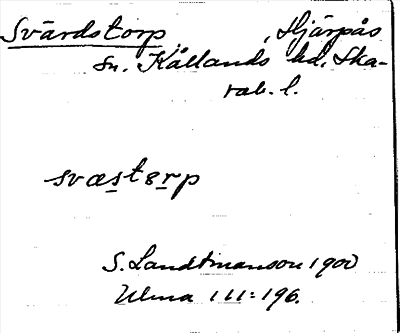 Svärdstorp, Hjärpås
sn. Kållands hd, Ska-
rab. l.
svæstɞrp
S. Landtmanson 1900
Ulma 111:196.